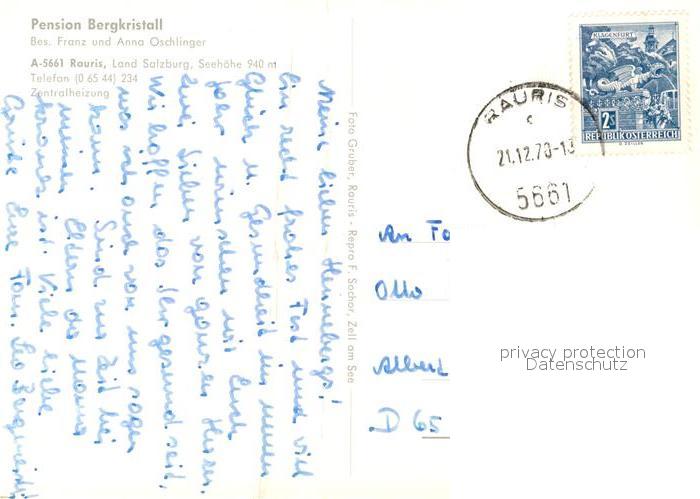 Pension Bergkristall
Bes. Franz und Anna Oschlinger
A-5661 Rauris, Land Salzburg, Seehöhe 940 m
Telefon (0 65 44) 234
Zentralheizung
Meine lieben Hennebergs!
Ein recht frohes Fest und viel
Glück u. Gesundheit im neuen
Jahr wünschen wir Euch
zwei Lieben von ganzem Herzen.
Wir hoffen, das Ihr gesund seid,
was ich auch von uns sagen
kann. Sind zur Zeit bei
meinen Eltern da Mama
krank ist. Viele liebe
Grüße Eure Fam. Leo
Foto Gruber, Rauris - Repro F. Sochor, Zell am See
KLAGENFURT
2S
REPUBLIK ÖSTERREICH
RAURIS
c
21.12.70-13
5661
An Fa
Otto
Albert
D 65
privacy protection
Datenschutz